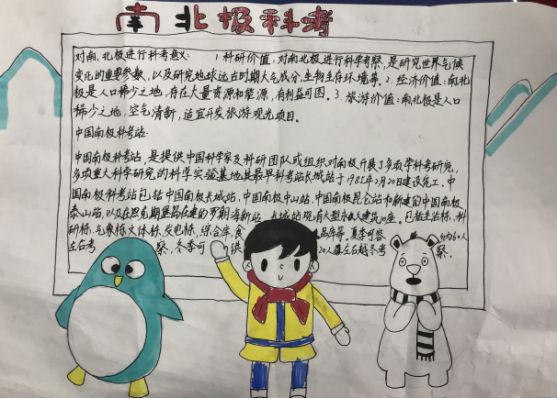 南北极科考
对南、北极进行科考意义: 1.科研价值:对南北极进行科学考察,是研究世界气候
变化的重要参数,以及研究地球远古时期大气成分生物生存环境等。2.经济价值:南北
极是人口稀少之地,存在大量资源和能源,有利益可图。3.旅游价值:南北极是人口
稀少之地,空气清新,适宜开发旅游观光项目。
中国南极科考站:
中国南极科考站,是提供中国科学家及科研团队或组织对南极开展了多项学科考研究,
多项重大科学研究的科学实验基地其最早科考站长城站于1985年2月20日建设完工.中
国南极科考站包括中国南极长城站,中国南极中山站,中国南极昆仑站和新建的中国南极
泰山站,以及在建的罗斯海新站.长城站现有大型永久建筑10座。包括生活栋,科
研栋,气象栋文体栋,发电栋,综合库,食 等。夏季可容 约60人
左右考 察,冬季可 20人左右越冬考 察.